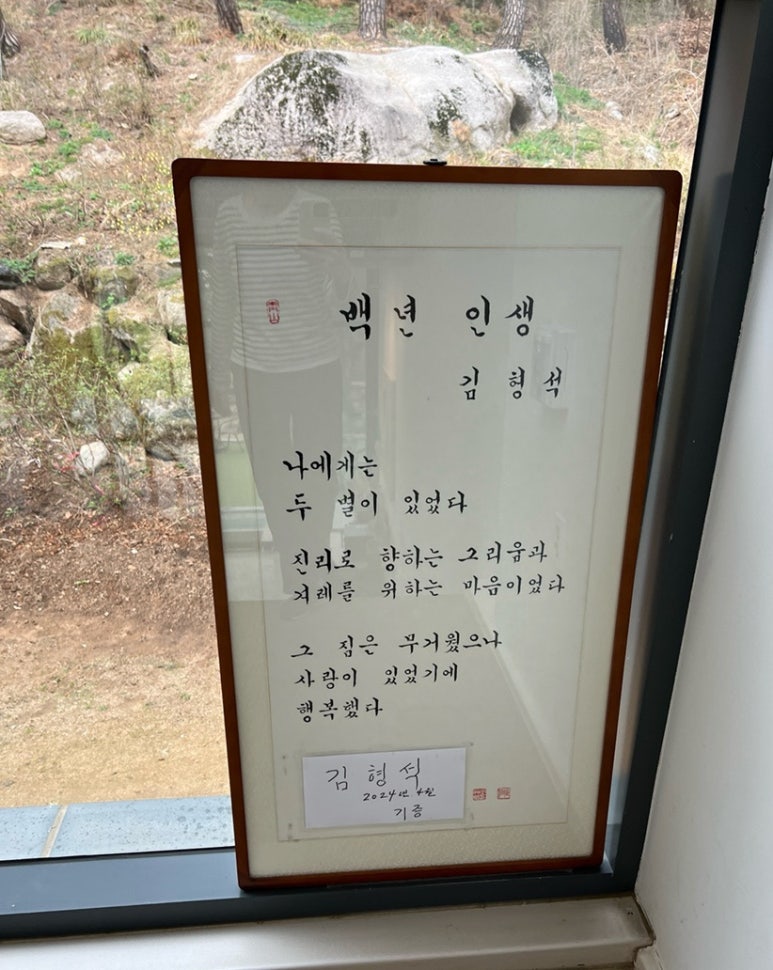 백년 인생
김 형 석
나에게는
두 별이 있었다
진리로 향하는 그리움과
겨레를 위하는 마음이었다
그 짐은 무거웠으나
사랑이 있었기에
행복했다
김 형 석
2024년 4월
기증